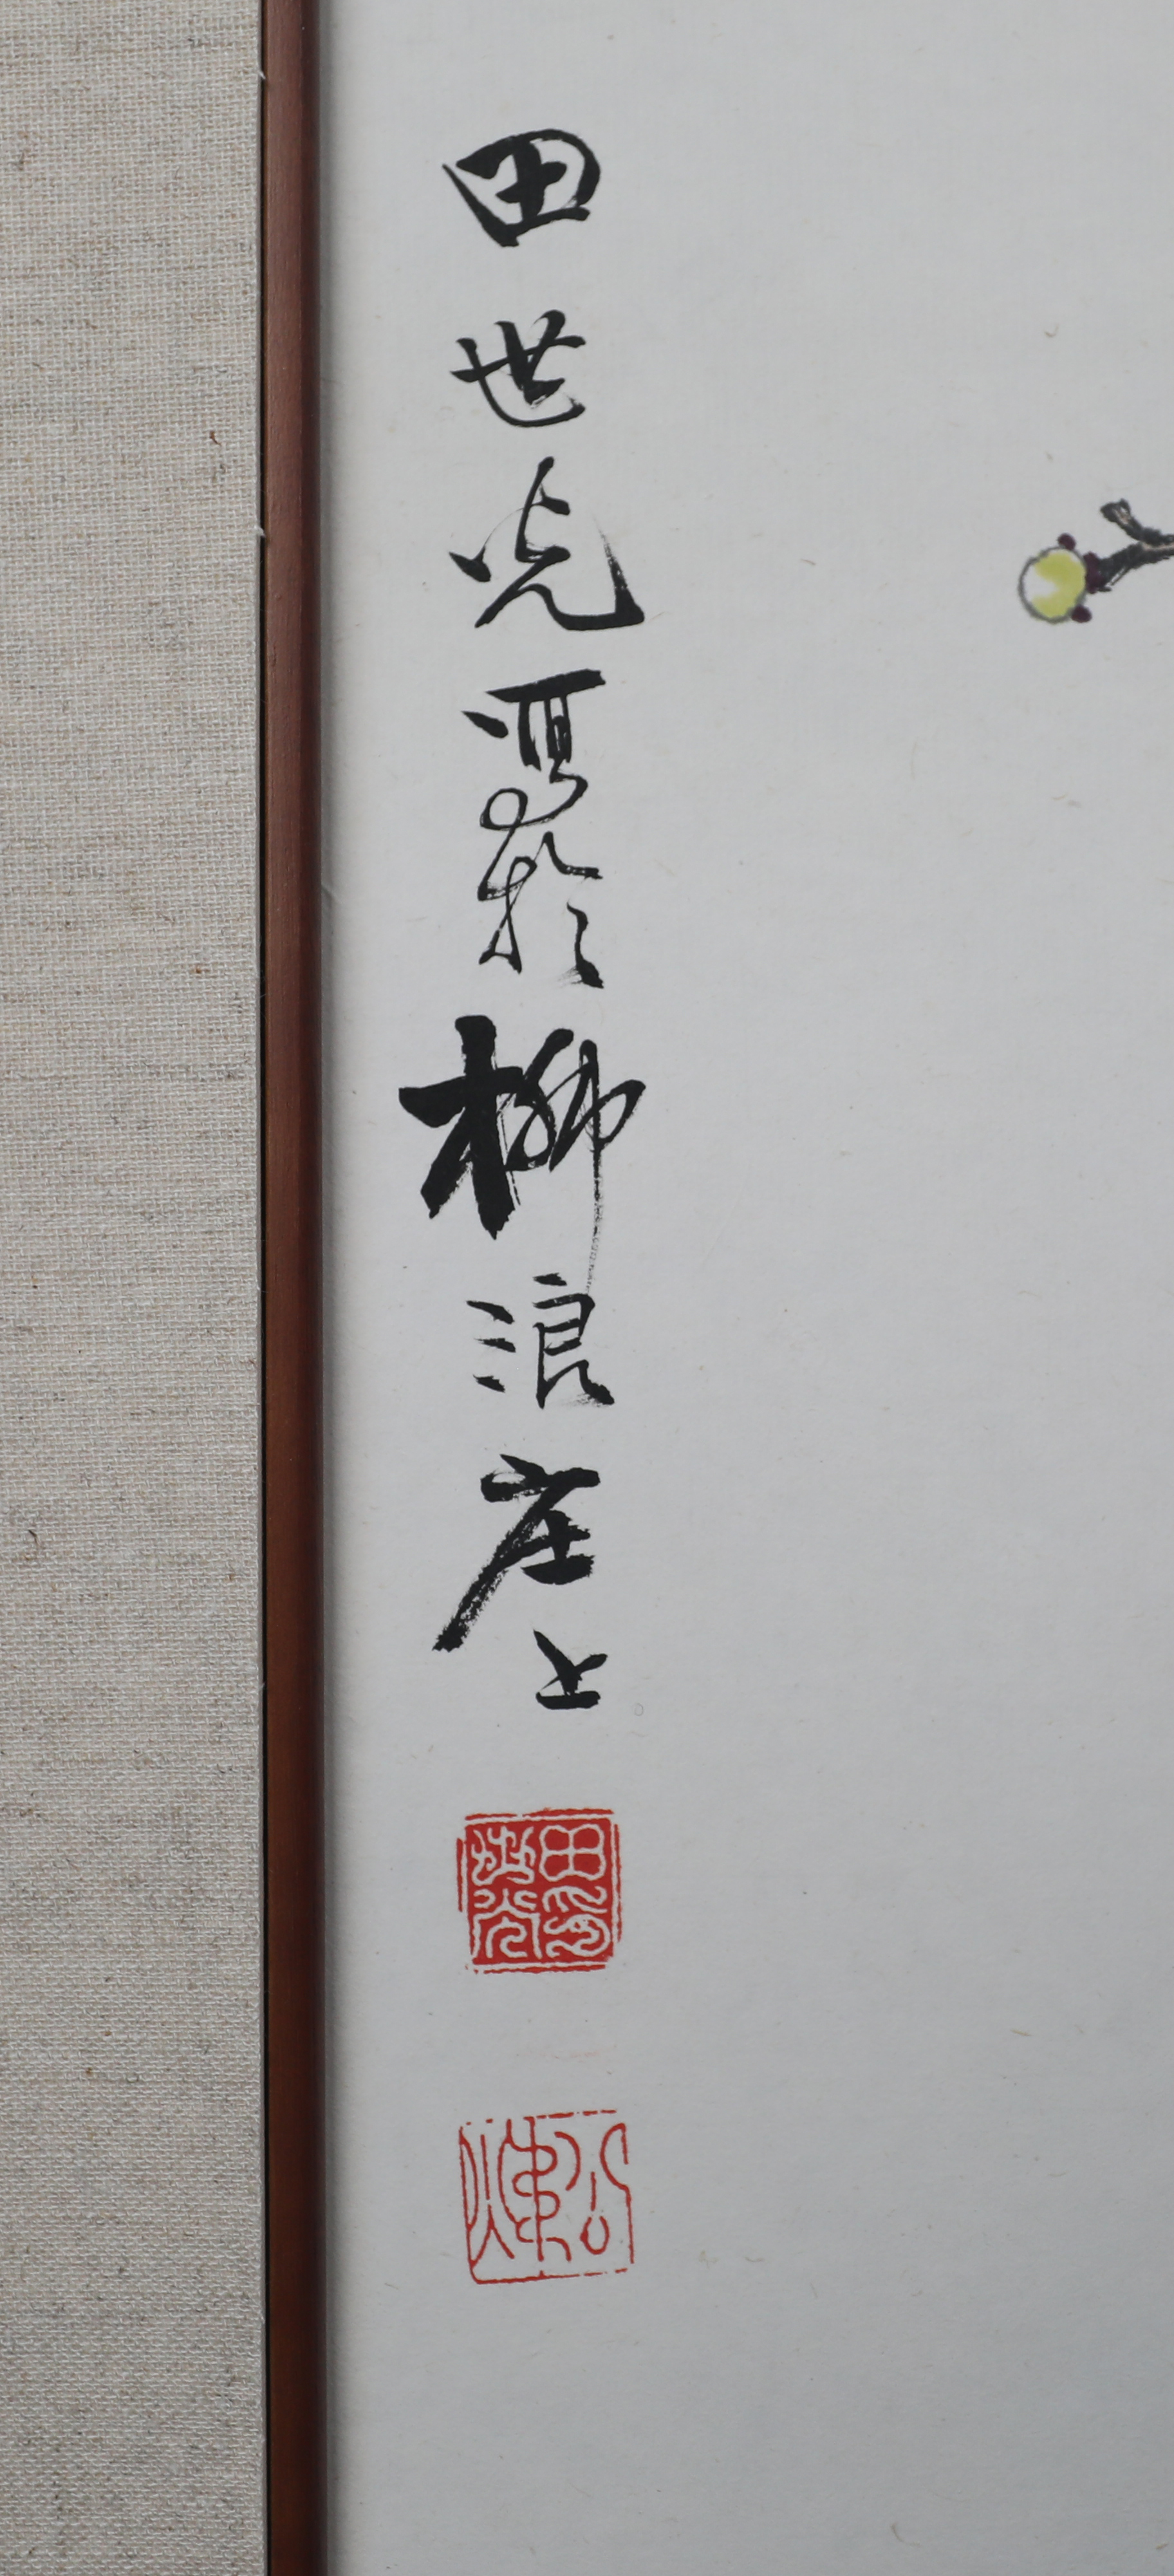 田世光寫於柳浪庄上
田世光印
公煒